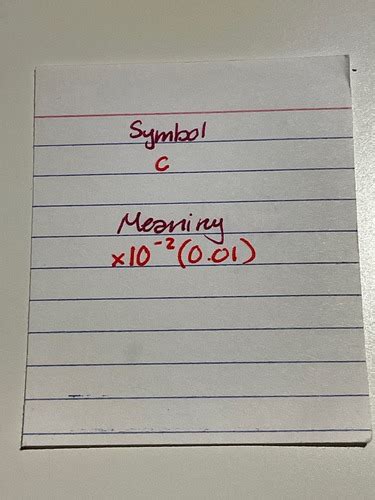 Symbol
c
Meaning
x10⁻²(0.01)